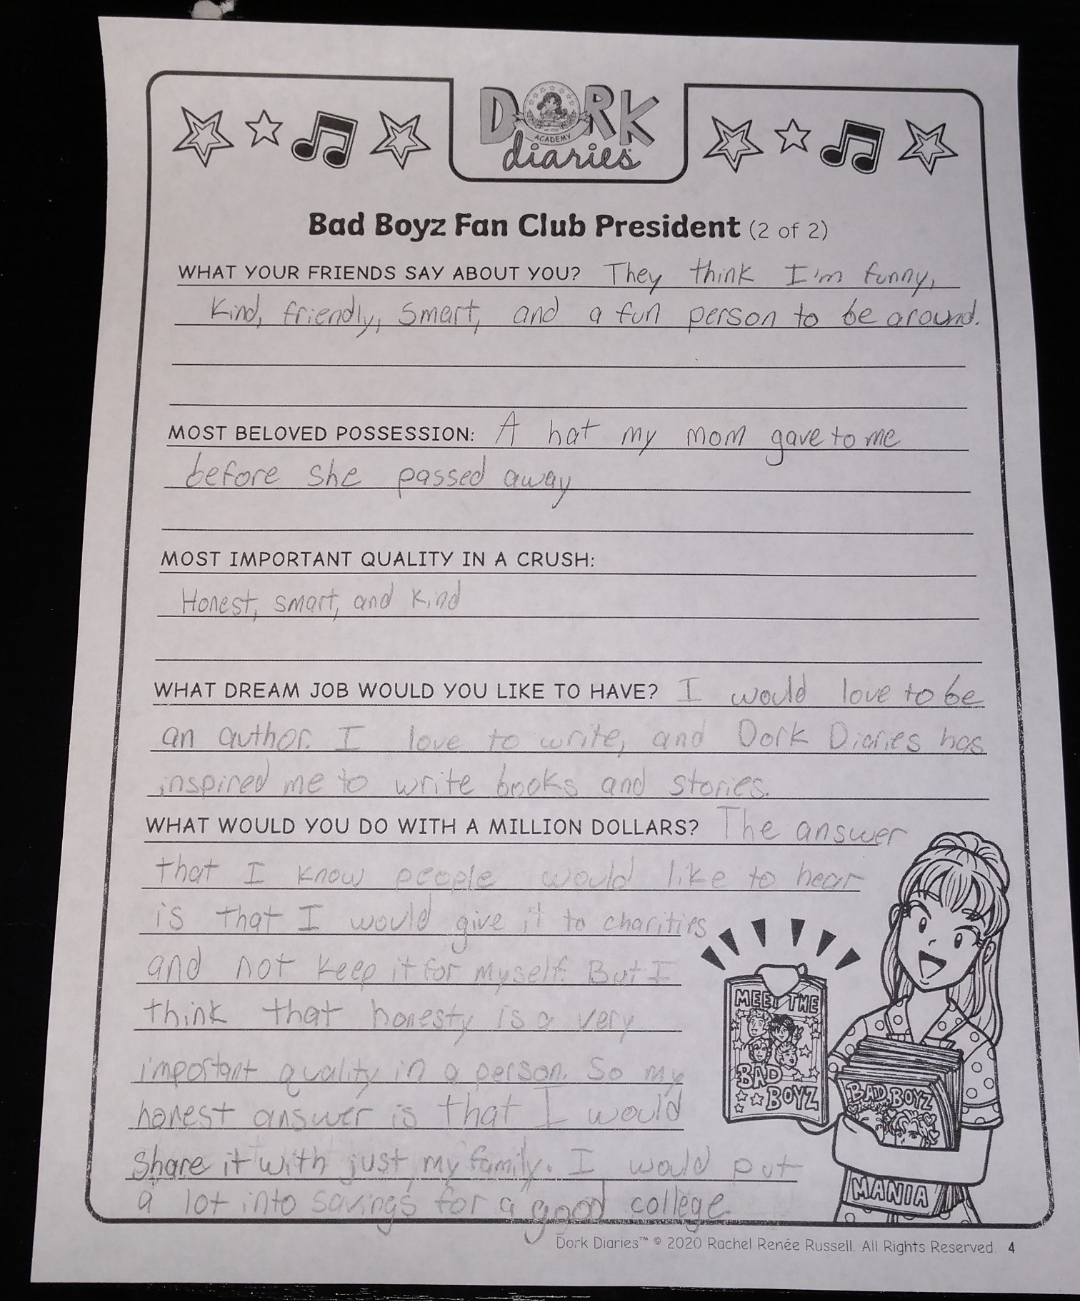 DORK
ACADEMY
diaries
Bad Boyz Fan Club President (2 of 2)
WHAT YOUR FRIENDS SAY ABOUT YOU? They think I'm funny,
kind, friendly, smart, and a fun person to be around.
MOST BELOVED POSSESSION: A hat my mom gave to me
before she passed away
MOST IMPORTANT QUALITY IN A CRUSH:
Honest, smart, and kind
WHAT DREAM JOB WOULD YOU LIKE TO HAVE? I would love to be
an author. I love to write, and Dork Diaries has
inspired me to write books and stories.
WHAT WOULD YOU DO WITH A MILLION DOLLARS? The answer
that I know people would like to hear
is that I would give it to charities
and not keep it for myself. But I
think that honesty is a very
important quality in a person. So my
honest answer is that I would
share it with just my family. I would put
a lot into savings for a good college
MEET THE
BAD
BOYZ
BAD BOYZ
MANIA
Dork Diaries™ © 2020 Rachel Renée Russell. All Rights Reserved. 4